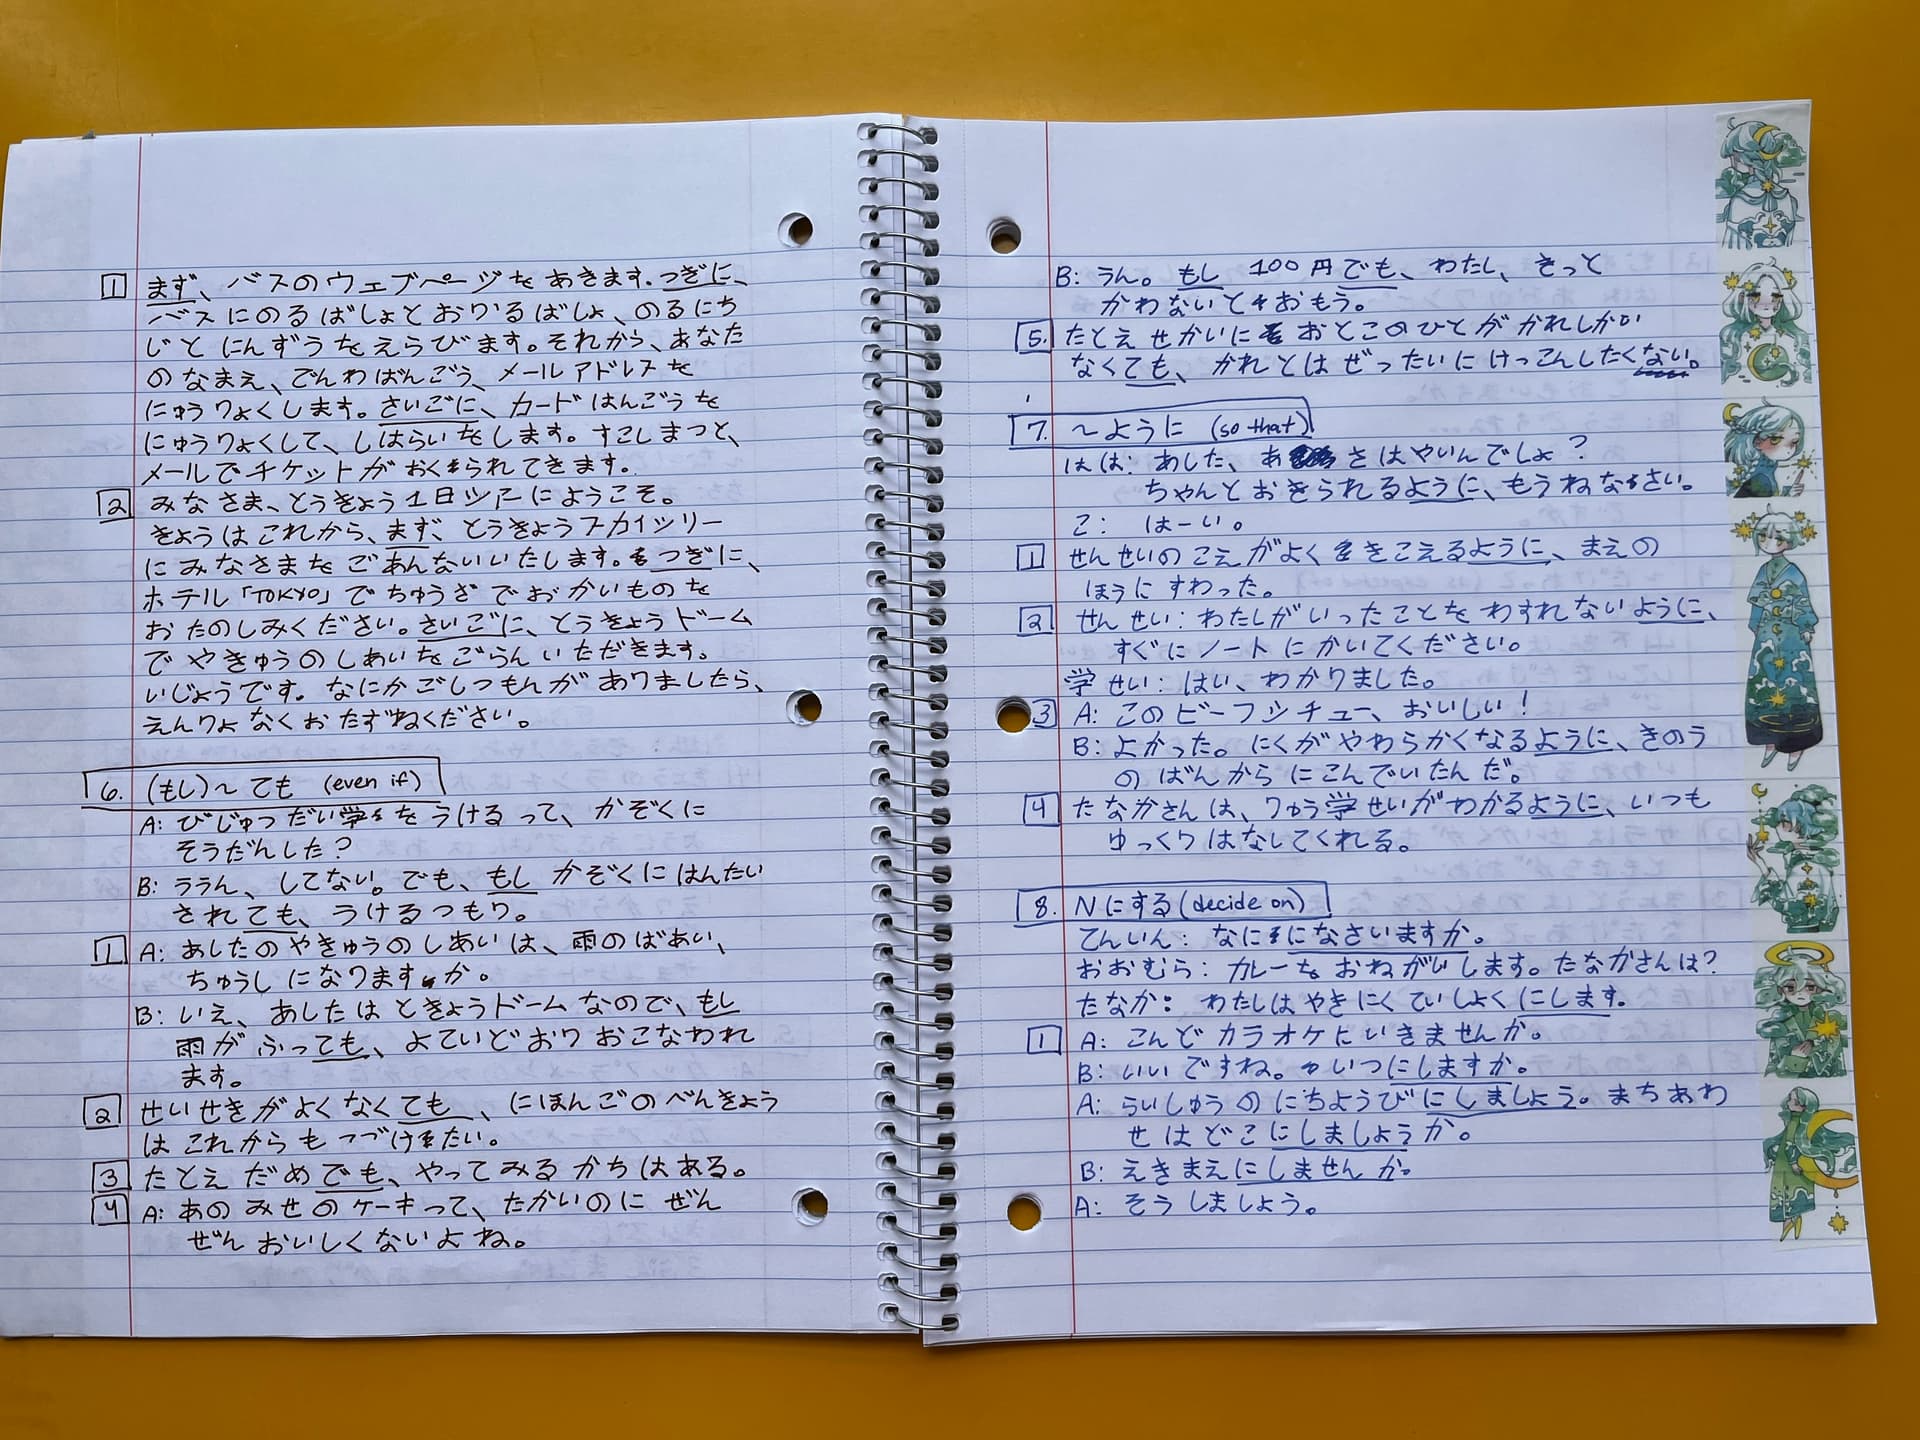 1 まず、バスのウェブページをあきます。つぎに、
バスにのるばしょとおりるばしょ、のるにち
じとにんずうをえらびます。それから、あなた
のなまえ、でんわばんごう、メールアドレスを
にゅうりょくします。さいごに、カードばんごうを
にゅうりょくして、しはらいをします。すこしまつと、
メールでチケットがおくられてきます。
2 みなさま、とうきょう1日ツアーにようこそ。
きょうはこれから、まず、とうきょうスカイツリー
にみなさまをごあんないいたします。つぎに、
ホテル「TOKYO」でちゅうざでおかいものを
おたのしみください。さいごに、とうきょうドーム
でやきゅうのしあいをごらんいただきます。
いじょうです。なにかごしつもんがありましたら、
えんりょなくおたずねください。
6. (もし)～ても (even if)
A: びじゅつだい学をうけるって、かぞくに
そうだんした?
B: ううん、してない。でも、もしかぞくにはんたい
されても、うけるつもり。
1 A: あしたのやきゅうのしあいは、雨のばあい、
ちゅうしになりますか。
B: いえ、あしたはときょうドームなので、もし
雨がふっても、よていどおりおこなわれ
ます。
2 せいせきがよくなくても、にほんごのべんきょう
はこれからもつづけたい。
3 たとえだめでも、やってみるかちはある。
4 A: あのみせのケーキって、たかいのにぜん
ぜんおいしくないよね。
B: うん。もし100円でも、わたし、きっと
かわないとおもう。
5. たとえせかいにおとこのひとがかれしか
なくても、かれとはぜったいにけっこんしたくない。
7. ～ように (so that)
はは: あした、あさはやいんでしょ?
ちゃんとおきられるように、もうねなさい。
こ: はーい。
1 せんせいのこえがよくきこえるように、まえの
ほうにすわった。
2 せんせい: わたしがいったことをわすれないように、
すぐにノートにかいてください。
学せい: はい、わかりました。
3 A: このビーフシチュー、おいしい!
B: よかった。にくがやわらかくなるように、きのう
のばんからにこんでいたんだ。
4 たなかさんは、りゅう学せいがわかるように、いつも
ゆっくりはなしてくれる。
8. Nにする (decide on)
てんいん: なにになさいますか。
おおむら: カレーをおねがいします。たなかさんは?
たなか: わたしはやきにくていしょくにします。
1 A: こんどカラオケにいきませんか。
B: いいですね。いつにしますか。
A: らいしゅうのにちようびにしましょう。まちあわ
せはどこにしましょうか。
B: えきまえにしませんか。
A: そうしましょう。